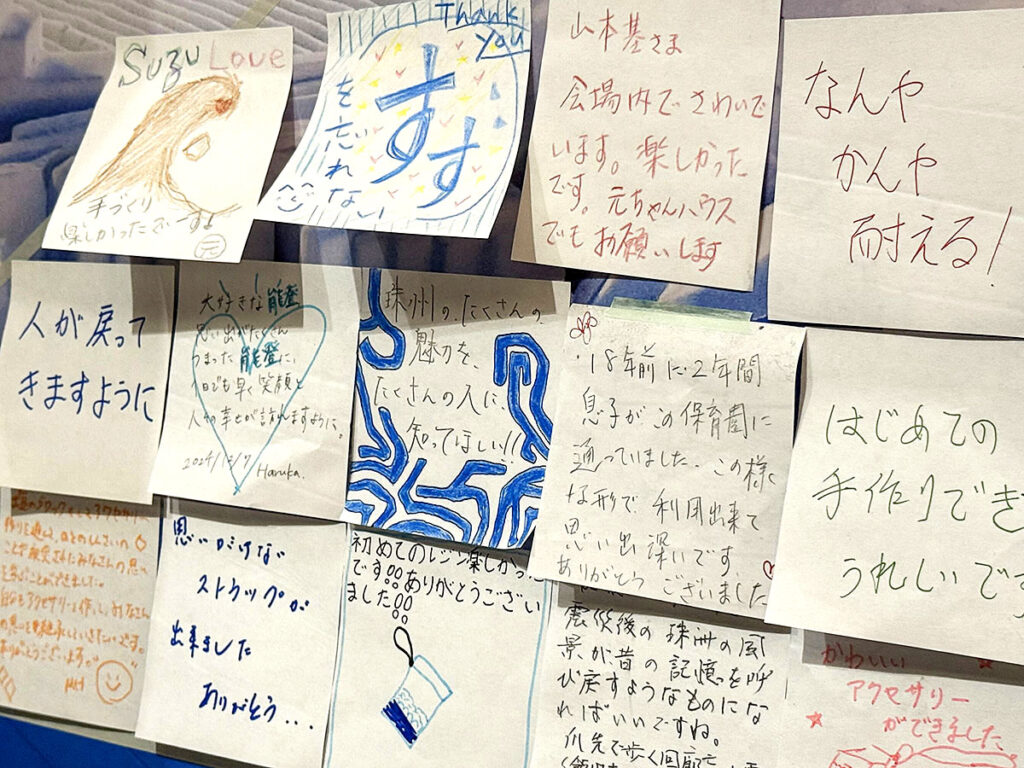 Suzu Love
手づくり
楽しかったでーすよ
元
Thank
you
すす
を忘れない
山本基さま
会場内でさわいで
います。楽しかった
です。元ちゃんハウス
でもお願いします
なんや
かんや
耐える!
人が戻って
きますように
大好きな能登
思い出がたくさん
つまった能登に、
1日でも早く笑顔と
人々の幸せが訪れますように。
2024/12/7 Haruka.
珠州の、たくさんの
魅力を、
たくさんの人に、
知ってほしい!!
18年前に2年間
息子がこの保育園に
通っていました。この様に
な形で利用出来て
思い出深いです
ありがとうございました
はじめての
手作りでき
うれしいです
ことができました。
ありがとうございます。
思いがけない
ストラップが
出来ました
ありがとう...
初めてのレジン楽しかった
です!!ありがとうござい
ました!!
震災後の珠洲の風
景が昔の記憶を呼
び戻すようなものにな
ればいいですね。
爪先で歩く回廊
かわいい
アクセサリー
ができました